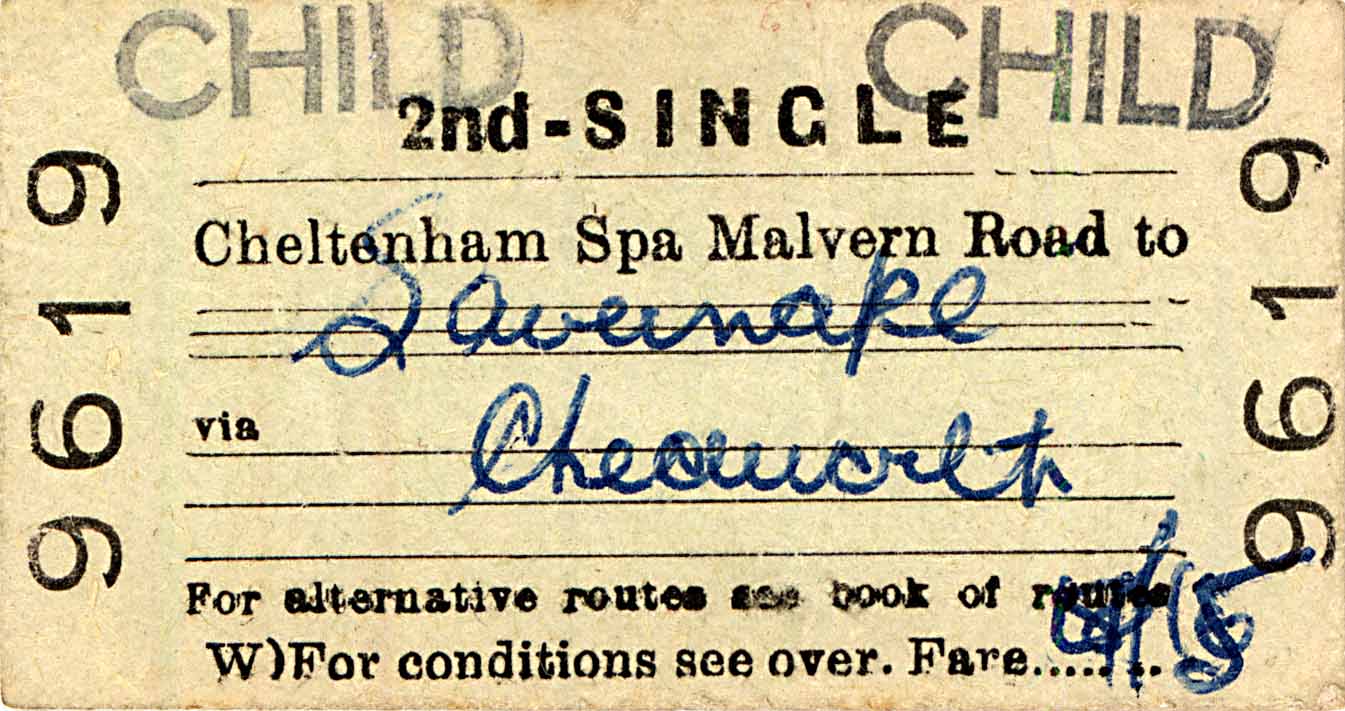 CHILD CHILD
2nd-SINGLE
Cheltenham Spa Malvern Road to
Savernake
via Chedworth
For alternative routes see book of routes
W)For conditions see over. Fare........
9619
9619